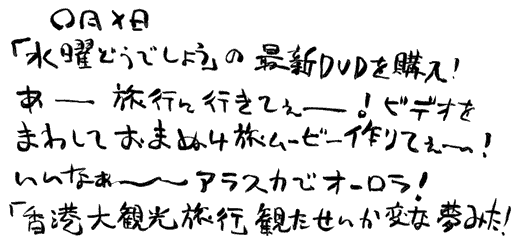 〇月×日
「水曜どうでしょう」の最新DVDを購入!
あー 旅行に行きてぇー!ビデオを
まわしておまぬけ旅ムービー作りてぇ～!
いいなぁ～～アラスカでオーロラ!
「香港大観光旅行観たせいか変な夢みた!